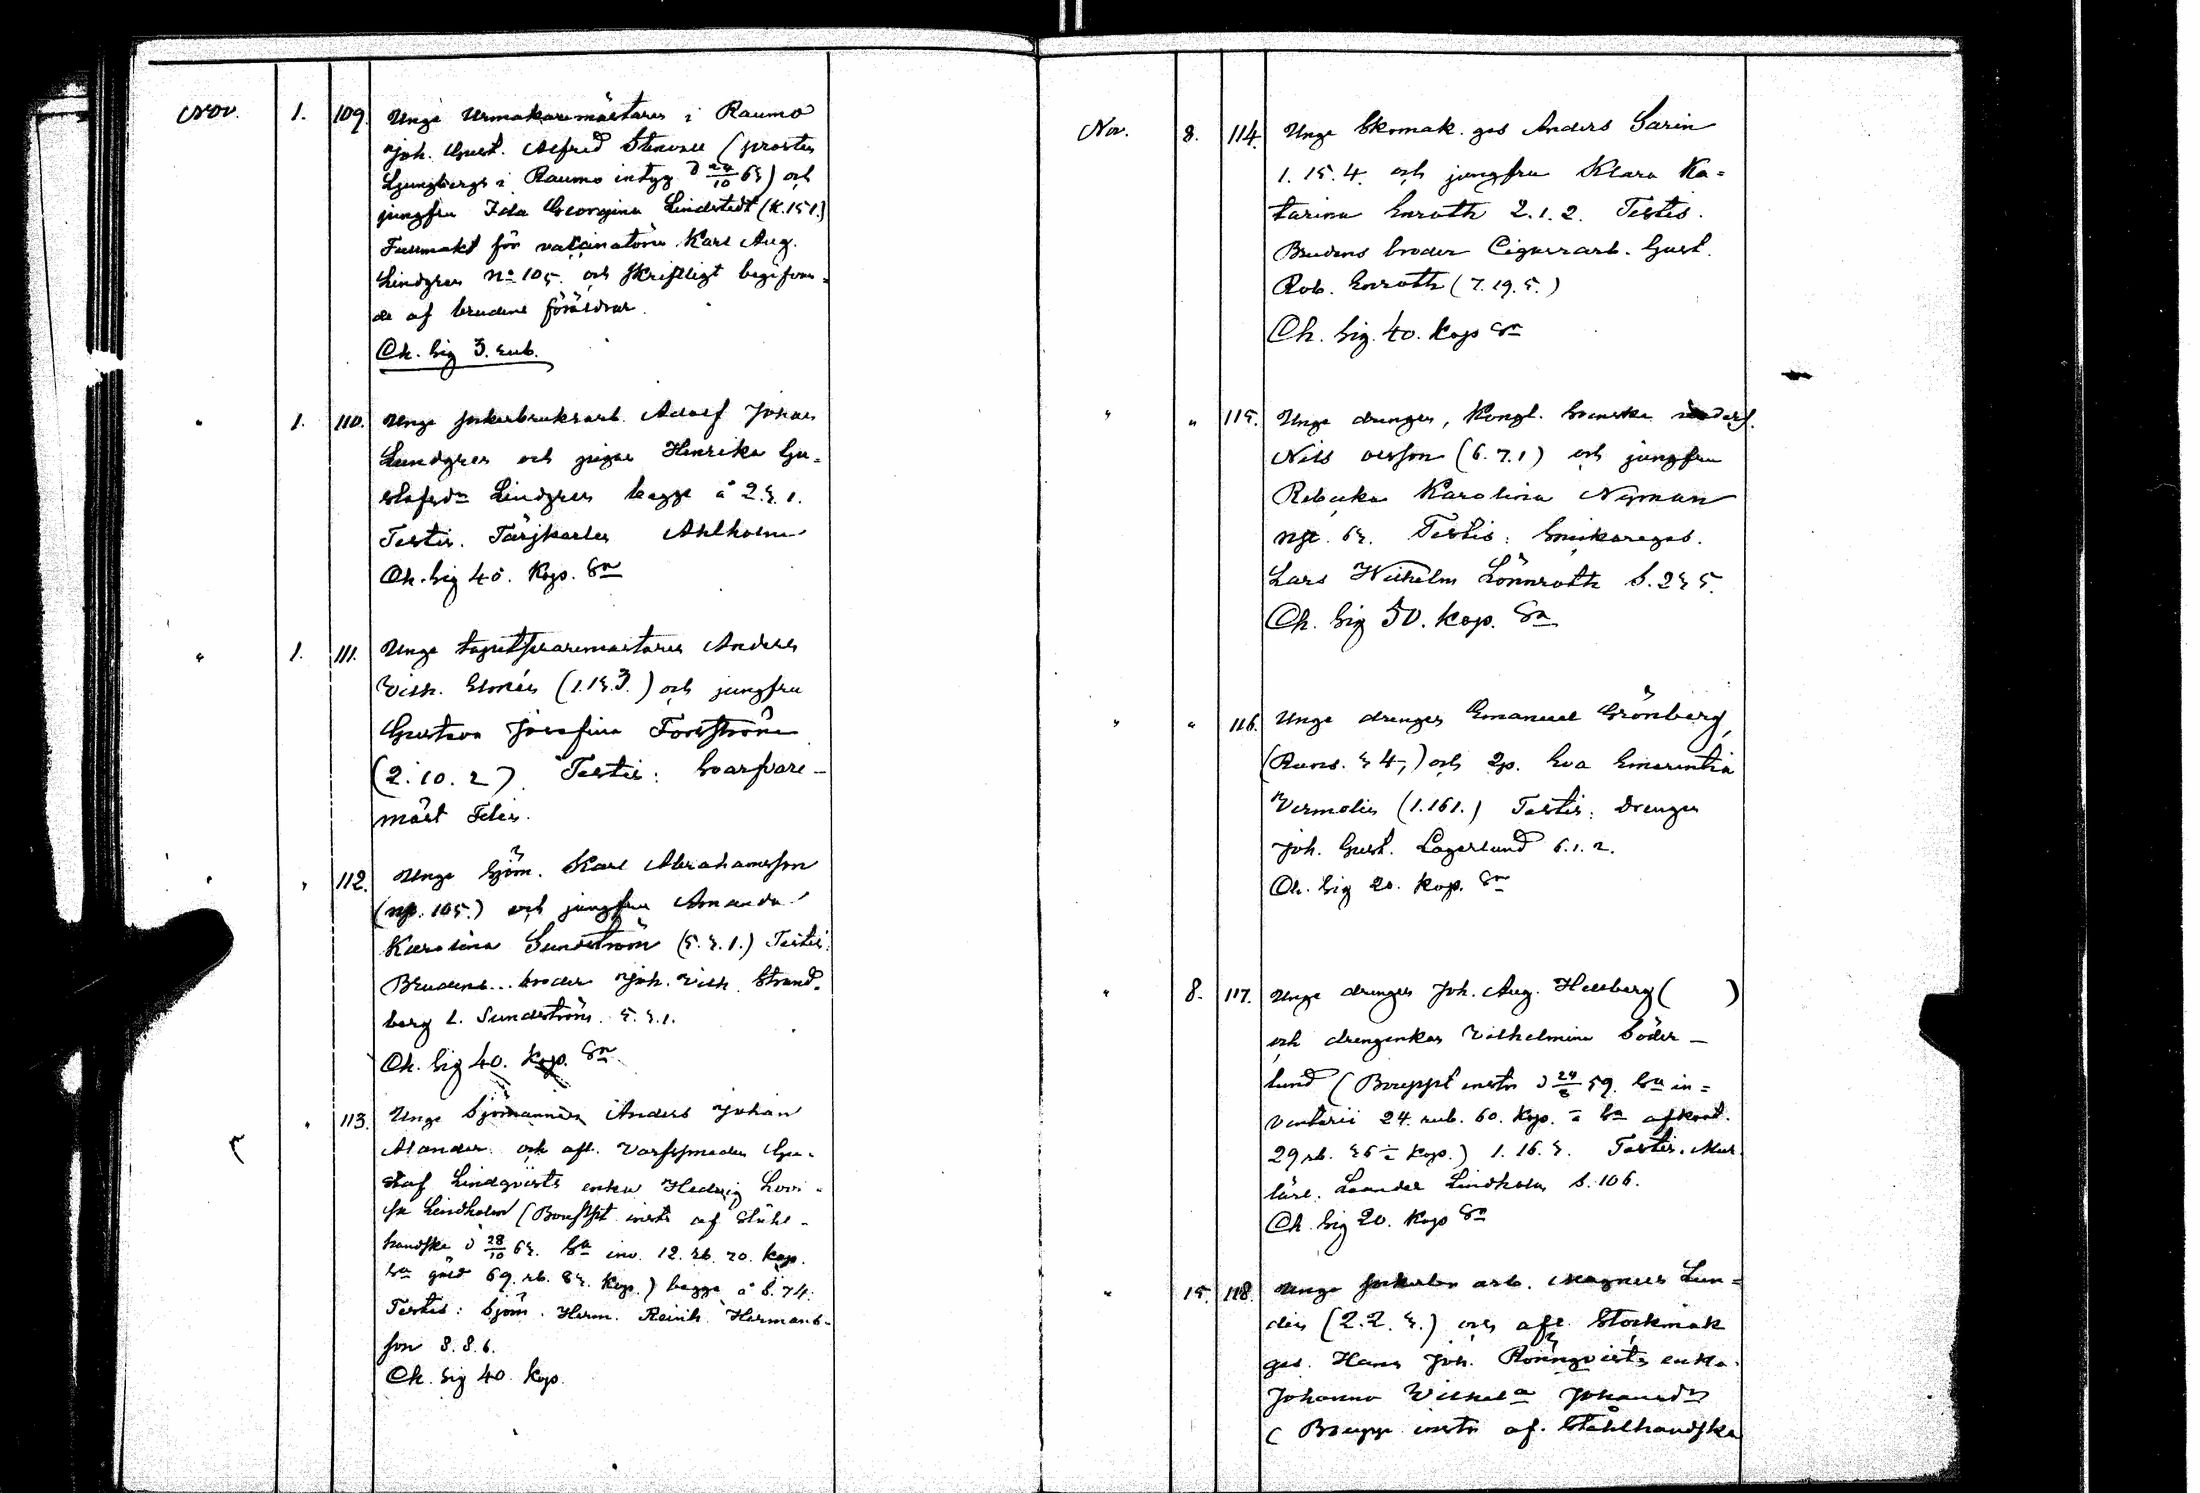 Nov. 1. 109. Unge Urmakaremästaren i Raumo
Joh. Gust. Alfred Stenvall (prosten
Ljungbergs i Raumo intyg d 24/10 65) och
jungfru Ida Georgina Lindstedt (K.151.)
Fullmakt för vaccinatören Karl Aug.
Lindgren No 105. och skriftligt begifvan-
de af brudens föräldrar.
Ch. Sig 3. rub.
" 1. 110. Unge sockerbruksarb. Adolf Johan
Lundgren och pigan Henrika Gu-
stafsdr Lindgren begge å 2.5.1.
Testis. Färjkarlen Ahlholm
Ch. Sig 40. Kop. Sr
" 1. 111. Unge tapetseraremästaren Anders
Vilh. (1.15.3.) och jungfru
Gustava Josefina Forsström
(2.10.2) Testis: Svarfvare-
mäst
" " 112. Unge Sjöm. Karl Abrahamsson
(np. 105.) och jungfru Amanda
Karolina Sundström (5.5.1.) Testis:
Brudens broder Joh. Vilh. Strand-
berg l. Sundström. 5.5.1.
Ch. Sig 40. Kop. Sr
" 113. Unge Sjömannen Anders Johan
Alander och afl. Varfssmeden Gu-
staf Lindqvists enka Hedvig Lovi-
sa Lindholm (Bouppt. instr af Stål-
handske d 28/10 65. Sa inv. 12. rb. 70. kop.
Sa gäld 69. rb. 85. Kop.) begge å S. 74.
Testis: Sjöm. Herm. Reinh. Hermans-
son 8.8.6.
Ch. Sig 40 Kop.
Nov. 8. 114. Unge Skomak. ges Anders Sarin
1.15.4. och jungfru Klara Ka-
tarina Enroth 2.1.2. Testis.
Brudens broder Cigarrarb. Gust.
Rob. Enroth (7.19.5.)
Ch. Sig. 40. Kop Sr
" " 115. Unge drängen, Kongl. Svenska unders.
Nils Olsson (6.7.1) och jungfru
Rebecka Karolina Nyman
np. 65. Testis: Snickareges.
Lars Wilhelm Lönnroth S. 235.
Ch. Sig 50. Kop. Sr
" " 116. Unge drängen Emanuel Grönberg,
(Rums. 54,) och 2p. Eva Emerentia
Vermelin (1.161.) Testis: Drängen
Joh. Gust. Lagerlund 6.1.2.
Ch. Sig 20. Kop. Sr
" 8. 117. Unge drängen Joh. Aug. Hellberg ( )
och drängenkan Vilhelmina Söder-
lund (Bouppt instr d 24/8 59. Sa in-
ventarii 24. rub. 60. Kop. Sa afkort.
29 rb. 56 ½ Kop.) 1.16.5. Testis. Mur.
lärl. Leander Lindholm S. 106.
Ch. Sig 20. Kop Sr
" 15. 118. Unge sockerbr arb. Magnus Lun-
din (2.2.5.) och afl. Stockmak
ges. Hans Joh. Rönnqvists enka
Johanna Wilhela Johansdr
(Boupp instr af Stålhandske